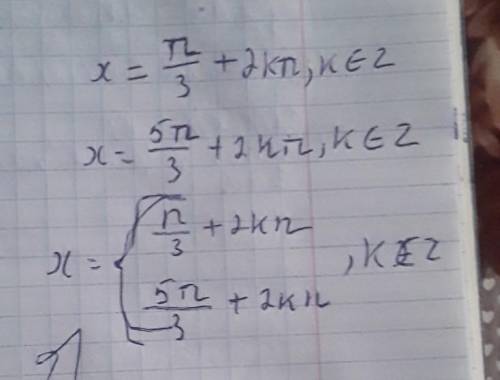 x = π/3 + 2kπ, k ∈ Z
x = 5π/3 + 2kπ, k ∈ Z
x = { π/3 + 2kπ
5π/3 + 2kπ , k ∈ Z